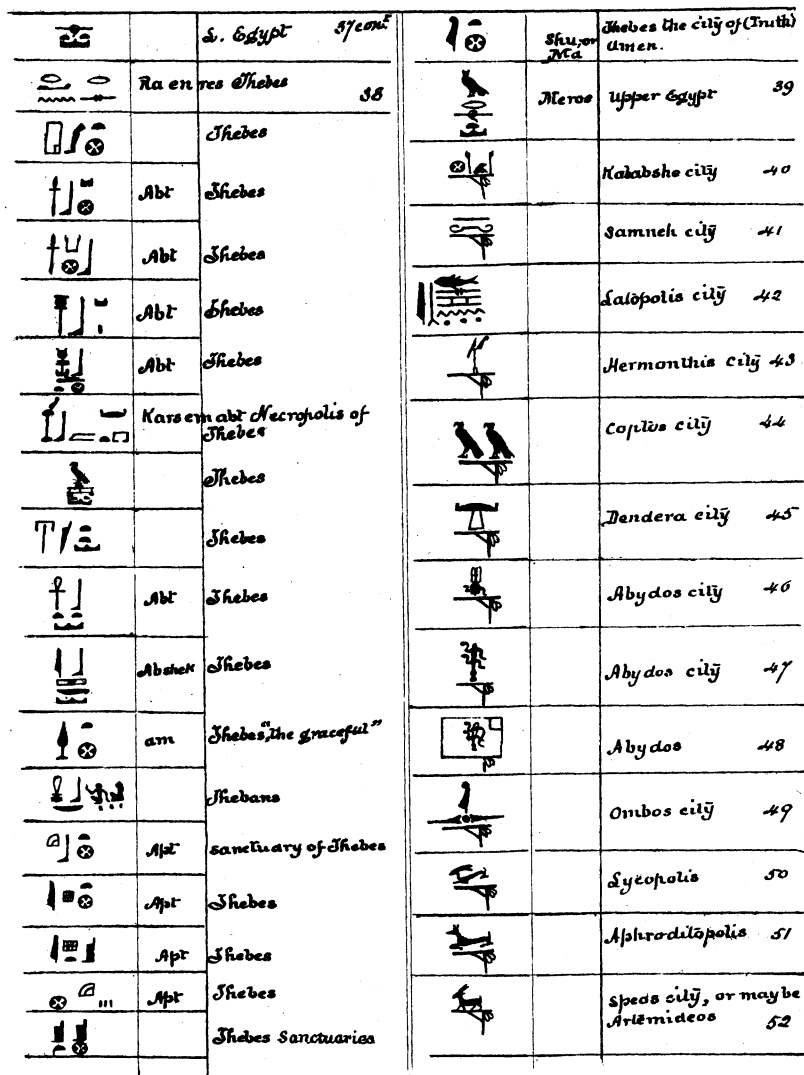 S. Egypt 37 cont
Ra en res Thebes 38
Thebes
Abt Thebes
Abt Thebes
Abt Thebes
Abt Thebes
Kars em abt Necropolis of
Thebes
Thebes
Thebes
Abt Thebes
Abshek Thebes
am Thebes "the graceful"
Thebans
Apt sanctuary of Thebes
Apt Thebes
Apt Thebes
Apt Thebes
Thebes Sanctuaries
Shu, or Ma Thebes the city of (Truth)
Amen.
Meros Upper Egypt 39
Kalabshe city 40
Samneh city 41
Latopolis city 42
Hermonthis city 43
Coptos city 44
Dendera city 45
Abydos city 46
Abydos city 47
Abydos 48
Ombos city 49
Lycopolis 50
Aphroditopolis 51
Speos city, or maybe
Artemideos 52